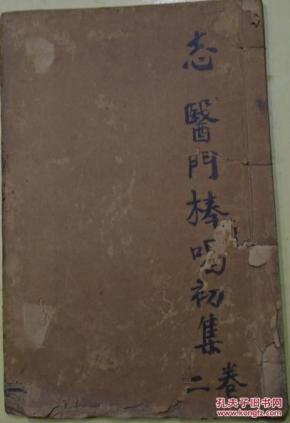 志 醫門棒喝初集
卷二
孔夫子旧书网